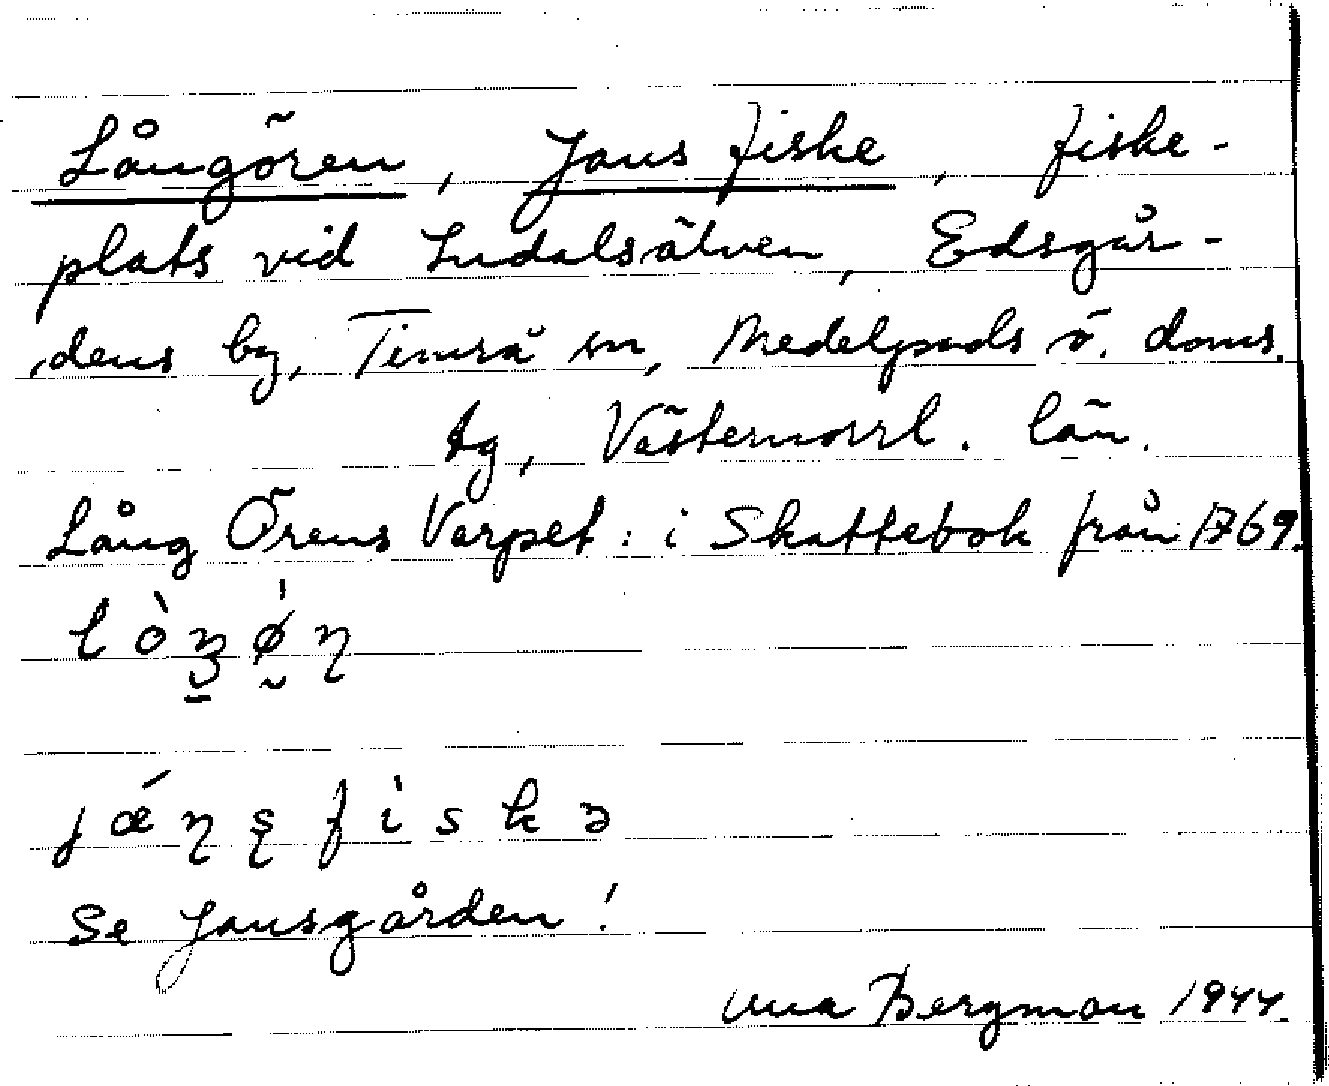 Långören, Jans fiske, fiske-
plats vid Indalsälven, Edsgår-
dens by, Timrå sn, Medelpads ö. doms.
tg, Västernorrl. län.
Lång Örens Varpet: i Skattebok från 1769.
lòŋø̀ɳ
jǽɳʂfìskə
Se Jansgården!
Una Bergman 1944.